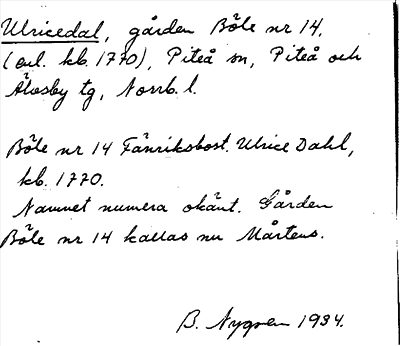 Ulricedal, gården Böle nr 14,
(enl. kb. 1770), Piteå sn, Piteå och
Älvsby tg, Norrb. l.
Böle nr 14 Fänriksbost. Ulrice Dahl,
kb. 1770.
Namnet numera okänt. Gården
Böle nr 14 kallas nu Mårtens.
B. Nygren 1934.